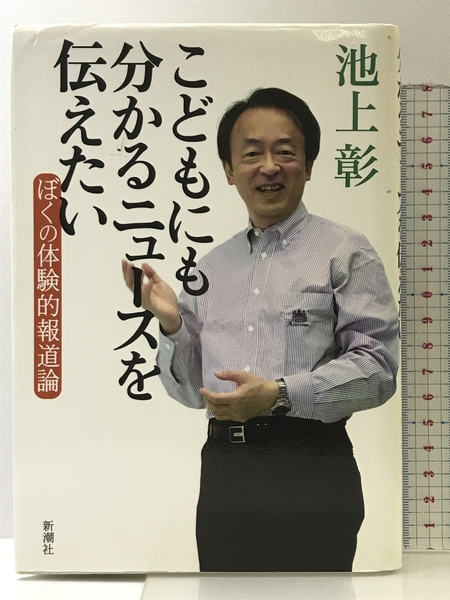 池上彰
こどもにも
分かるニュースを
伝えたい
ぼくの体験的報道論
新潮社